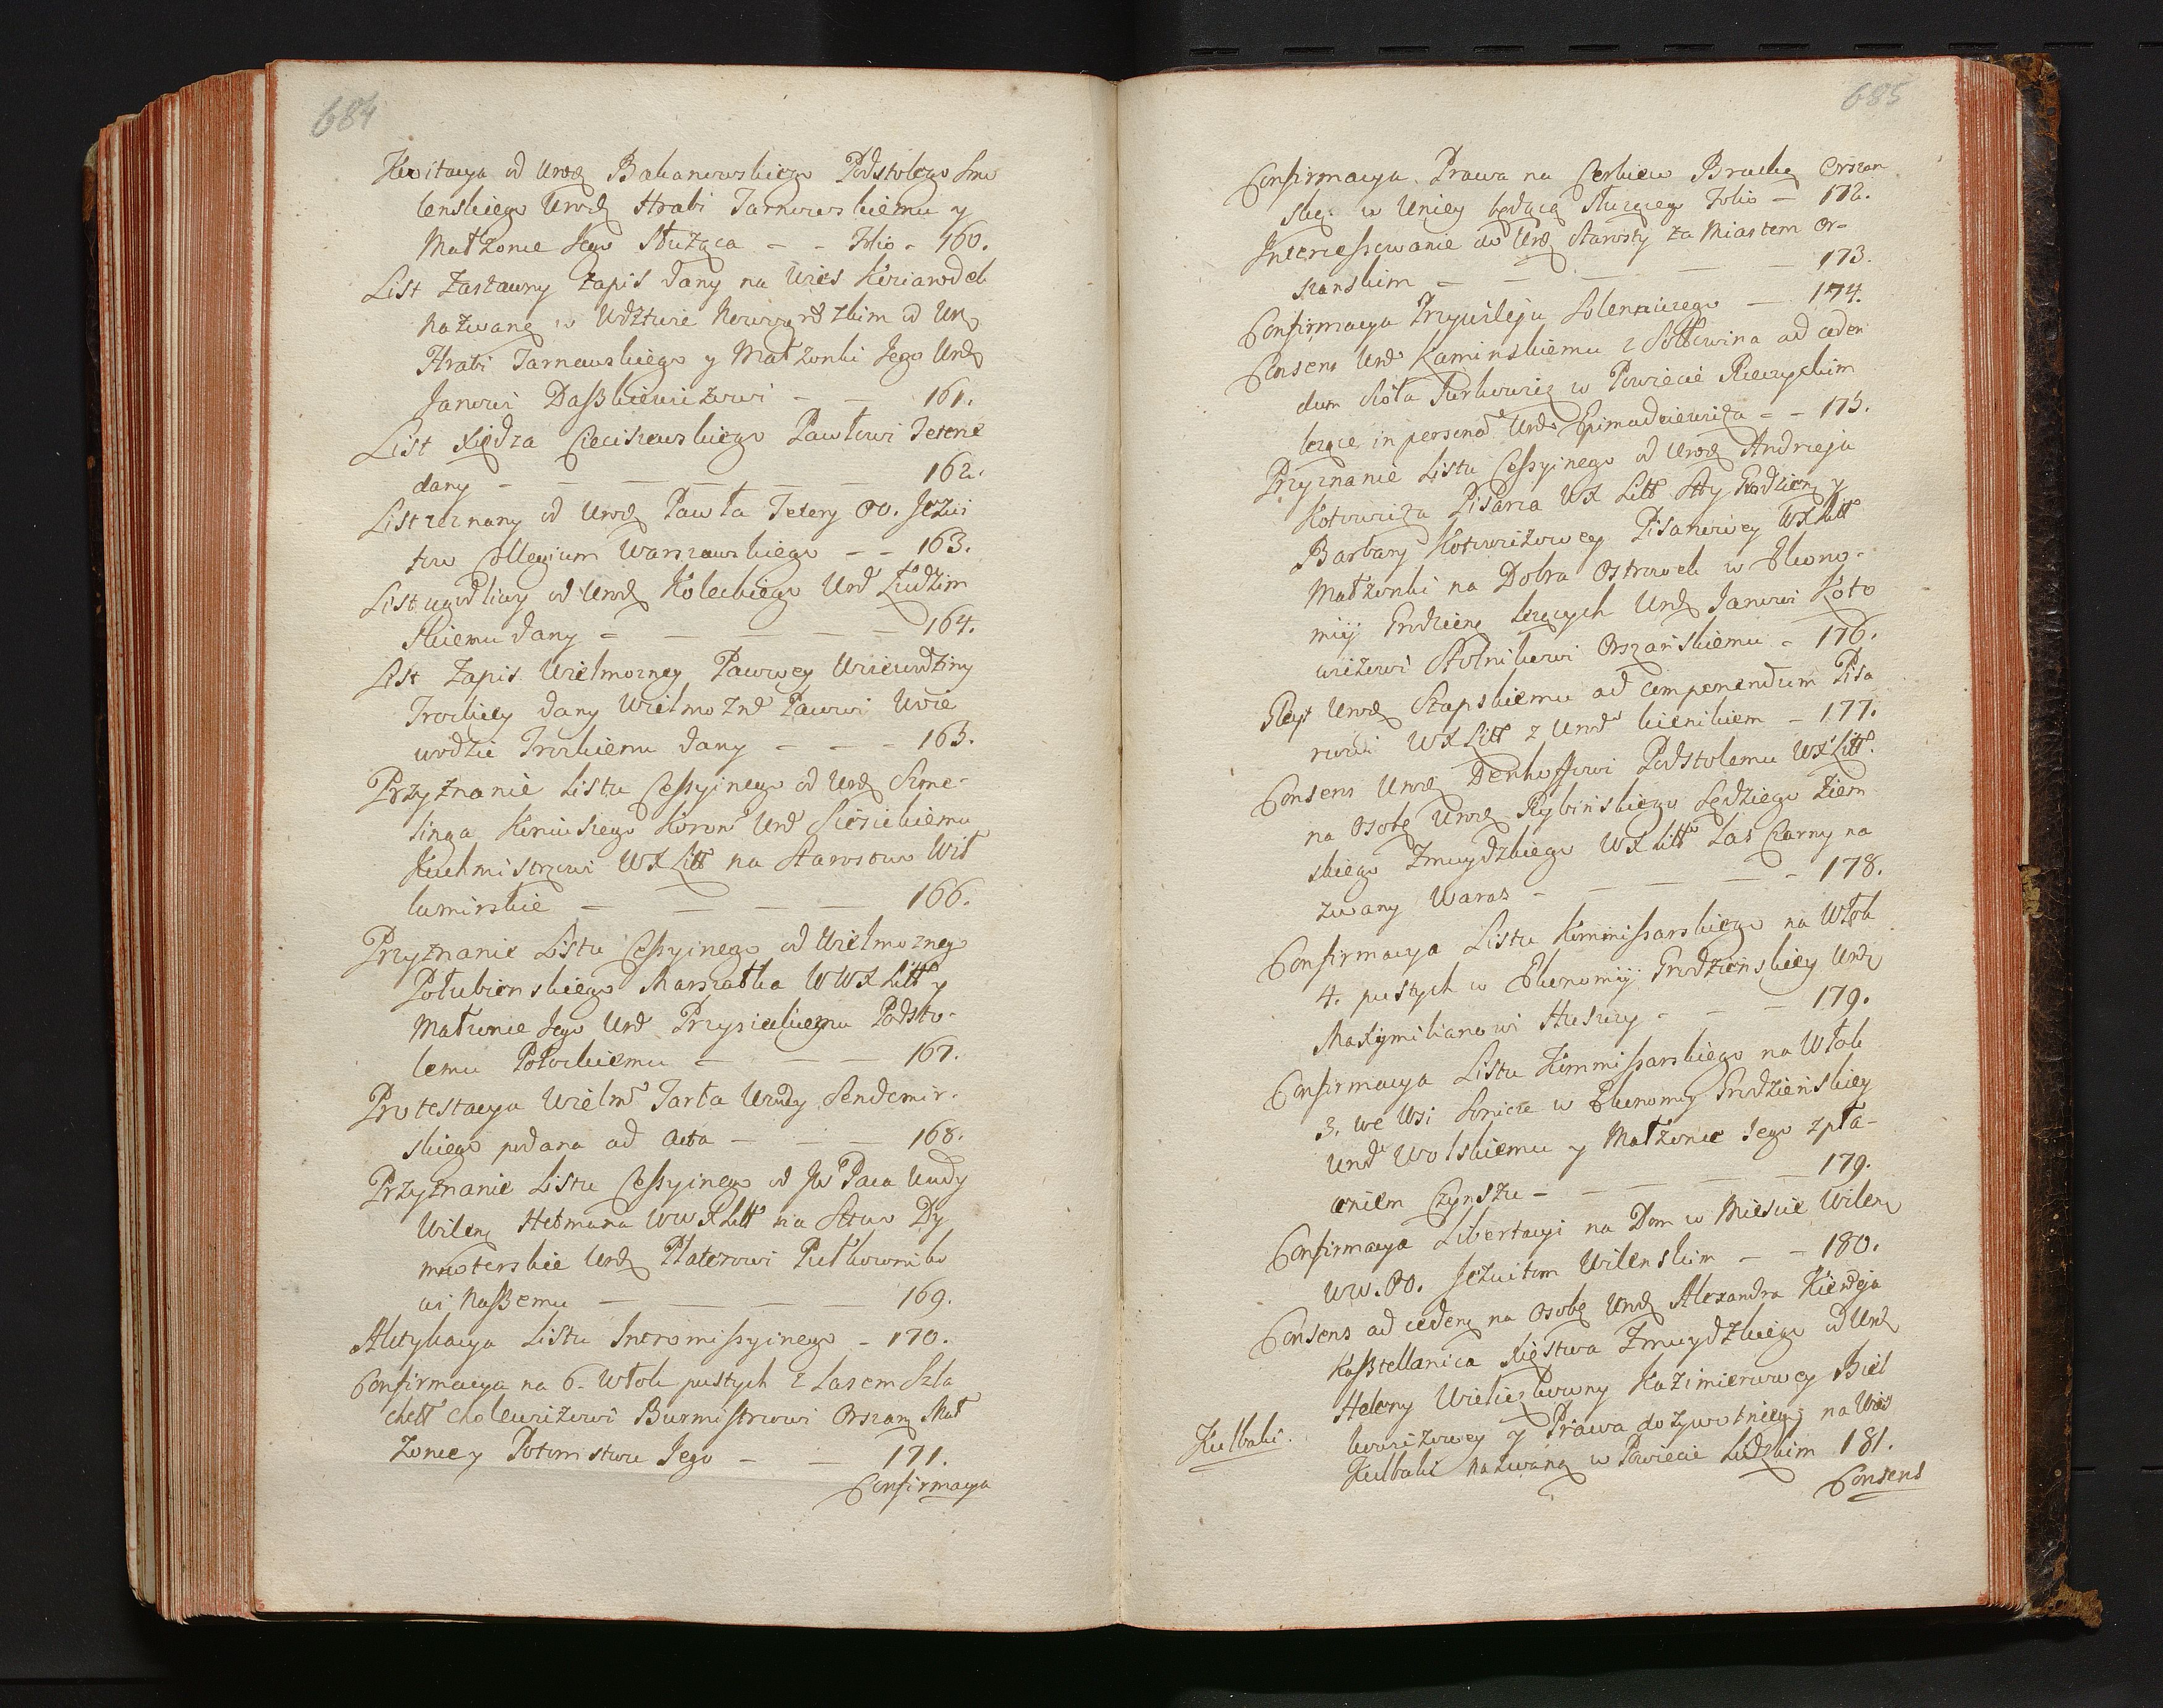 684
Kwitacya od Urodz Bakanowskiego Podstolego Smo
lenskiego Urodz Hrabi Tarnowskiemu y
Małzonce Jego Służąca - - Folio - 160.
List Zastawny Zapis dany na Wies Koziarodek
nazwaną w Wdztwie Nowogrodzkim od Ur
Hrabi Tarnowskiego y Małzonki Jego Urodz
Janowi Daszkiewiczowi - - 161.
List Xiędza Cieciszewskiego Pawłowi Tetene
dany - - - - - 162.
List zeznany od Urodz Pawła Tetery OO. Jezui
tow Collegium Warszawskiego - - 163.
List ugodliwy od Urodz Koleckiego Urod Ludzim
skiemu dany - - - - 164.
List Zapis Wielmozney Pacowey Wojewodziny
Trockiey dany Wielmozne Pacowi Woie
wodzie Trockiemu dany - - - 165.
Przyznanie Listu Cessyinego od Urodz Szme-
linga Koniuszego Koron Urod Siesickiemu
Kuchmistrzowi WXLitt na Starostwo Wił
kumirskie - - - - 166.
Przyznanie Listu Cessyinego od Wielmoznego
Połubienskiego Marszałka WWXLitt y
Małzonie Jego Urod Przysieckiemu Podsto-
lemu Połockiemu - - - 167.
Protestacya Wielm Tarła Wdy Sendomir-
skiego podana ad Acta - - - 168.
Przyznanie Listu Cessyinego od JW Paca Wdy
Wilen Hetmana WWXLitt na Sttwo Dy
mosterskie Urodz Platerowi Pułkowniko
wi Naszemu - - - - 169.
Aktykacya Listu Intromissyinego - 170.
Confirmacya na 6. Włok pustych z Lasem Szla
chett Cholewiczowi Burmistrzowi Orszan Mał
zonce y Potomstwu Jego - - 171.
Confirmacya
685
Confirmacya Prawa na Cerkiew Bracką Orszan
ską w Uniey będącą Służącego Folio - 172.
Intercessowanie do Urodz Starosty za Miastem Or-
szanskim - - - - 173.
Confirmacya Przywileju Solennicego - 174.
Consens Urod Kaminskiemu z Sołtowina ad ceden
dum Sioła Purkowicz w Powiecie Rieczyckim
lezące in personam Urod Epimachiewicza - - 175.
Przyznanie Listu Cessyinego od Urodz Andrzeja
Kotowicza Pisarza WX Litt Stty Grodzien y
Barbary Kotowiczowey Pisarzowey WXLitt
Małzonki na Dobra Ostrowek w Ekono-
mij Grodzien lezących Urodz Janowi Koto
wiczowi Stolnikowi Orszanskiemu - 176.
Gleyt Urodz Szapskiemu ad componendum Pisa
rzowi WXLitt z Urod kienikiem - 177.
Consens Urodz Denhoffowi Podstolemu WXLitt.
na Osobę Urodz Rybinskiego Sędziego Ziem
skiego Zmuydzkiego WXLitt Las Czarny na
zwany Waras - - - - 178.
Confirmacya Listu Kommissarskiego na Włok
4. pustych w Ekonomij Grodzienskiey Urodz
Maxymilianowi Huszczy - - - 179.
Confirmacya Listu Kommissarskiego na Włok
3. we Wsi Sonicze w Ekonomiy Grodzieńskiey
Urod Wolskiemu y Małzonce Jego z pła-
ceniem Czynszu - - - - 179.
Confirmacya Libertacyi na Dom w Miescie Wilen
WW. OO. Jezuitom Wilenskim - - 180.
Consens ad ceden na Osobę Urodz Alexandra Kierdeja
Kasztellanica Xięstwa Zmuydzkiego od Urodz
Heleny Wieliczkowny Kazimierzowey Biel
kowiczowey y Prawa dozywotniego na Wies
Kulbaki. Kulbaki nazwaną w Powiecie Lidzkim 181.
Consens